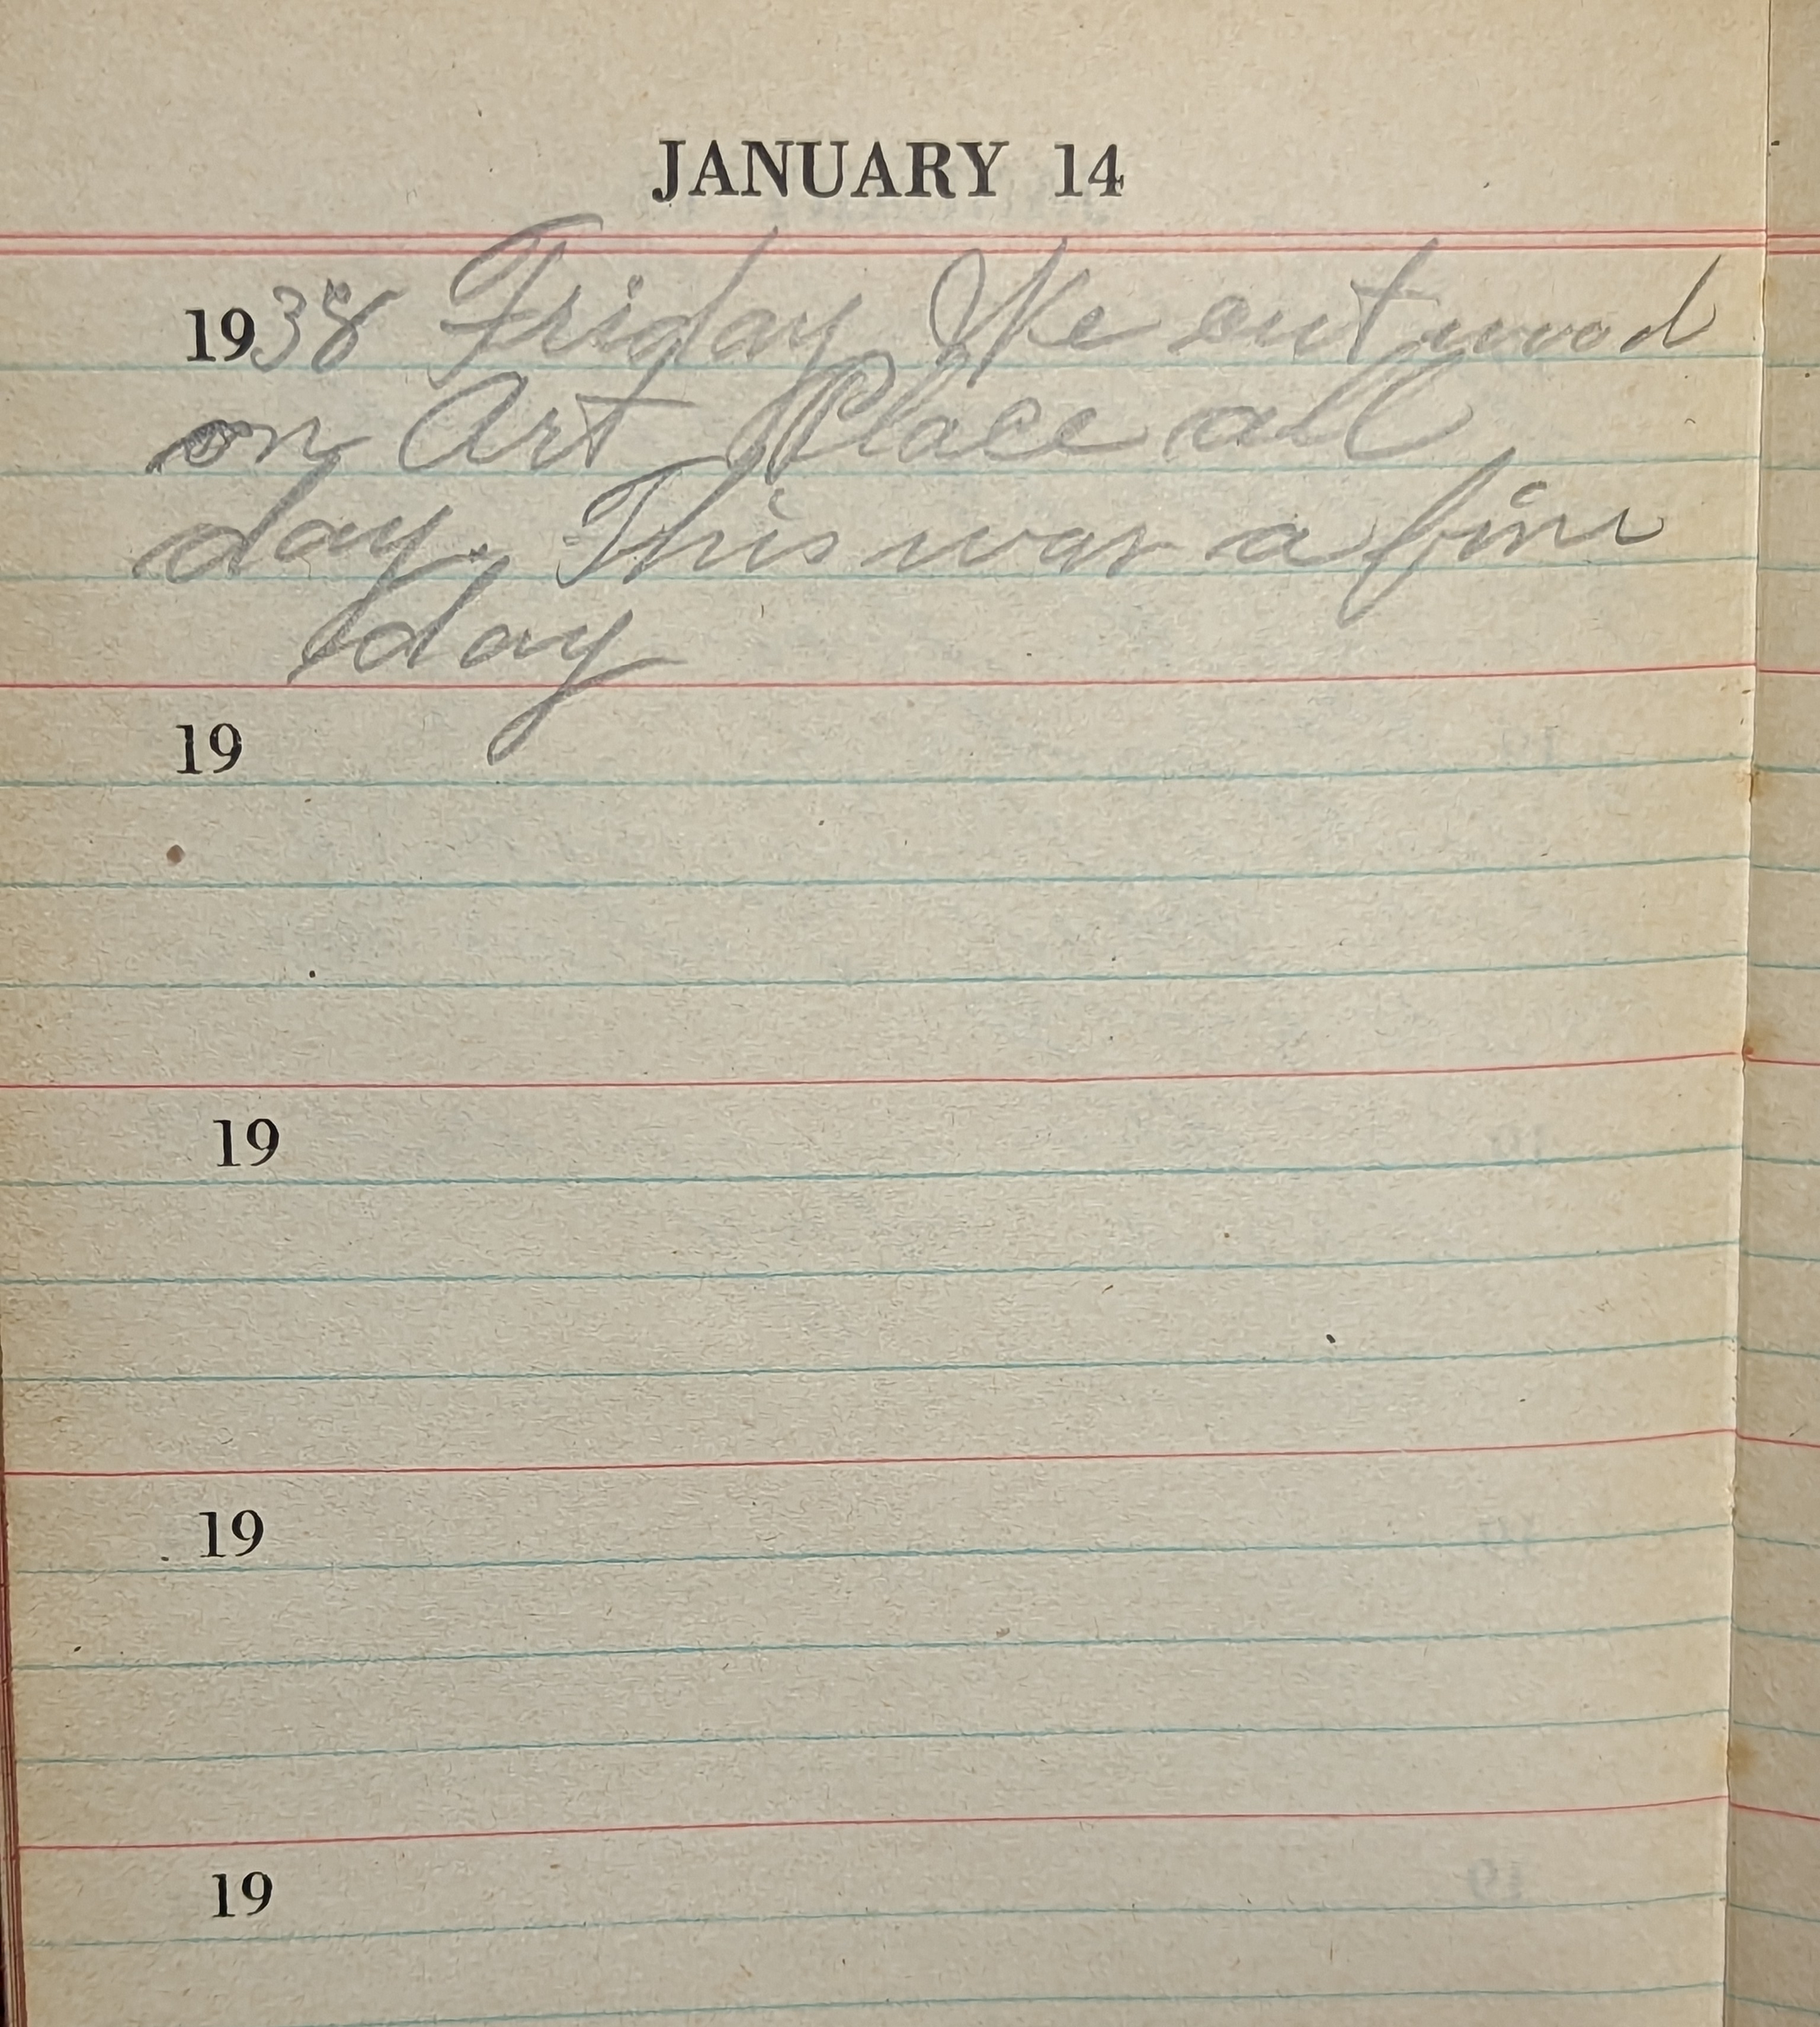 JANUARY 14
1938 Friday We cut wood
on Art Place all
day. This was a fine
day
19
19
19
19